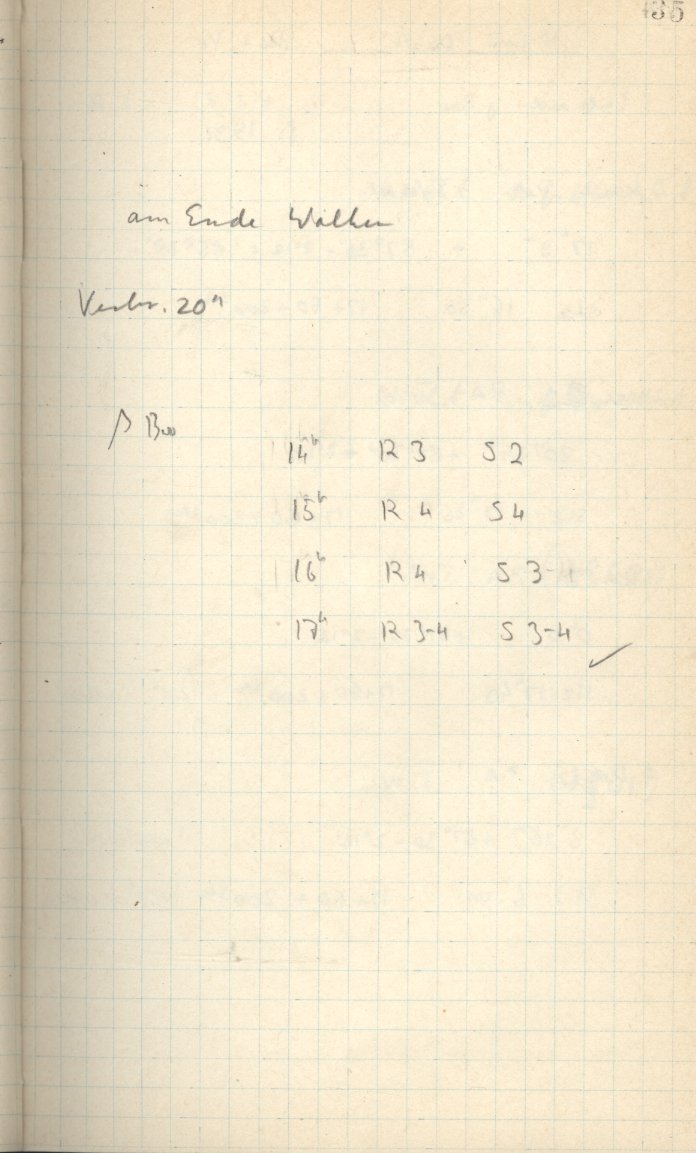 35
am Ende Wolken
Verbr. 20ⁿ
β Boo
14ʰ R 3 S 2
15ʰ R 4 S 4
16ʰ R 4 S 3-4
17ʰ R 3-4 S 3-4 ✓